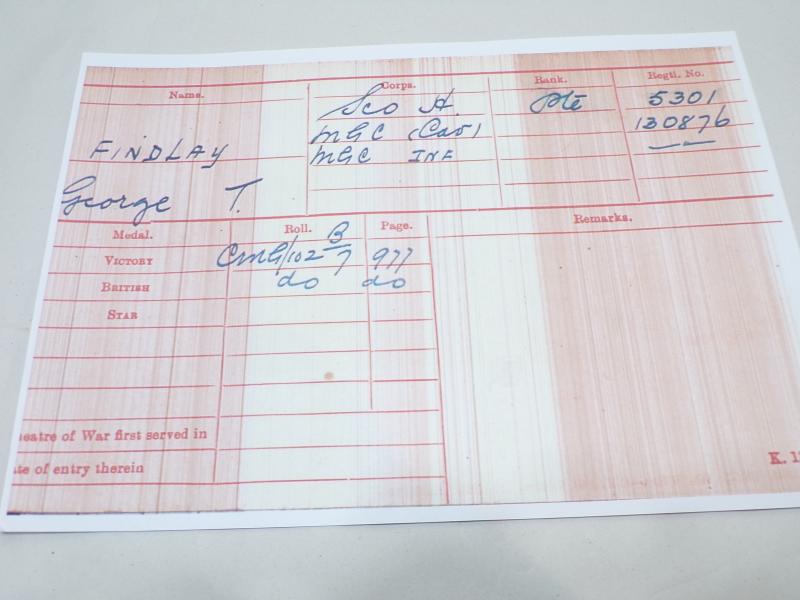 Name. Corps. Rank. Regtl. No.
Sco H. Pte 5301
MGC (Cav) 130876
FINDLAY MGC INF —"—
George T.
Medal. Roll. Page. Remarks.
VICTORY CMG/102 B/7 977
BRITISH do do
STAR
eatre of War first served in
te of entry therein
K. 1